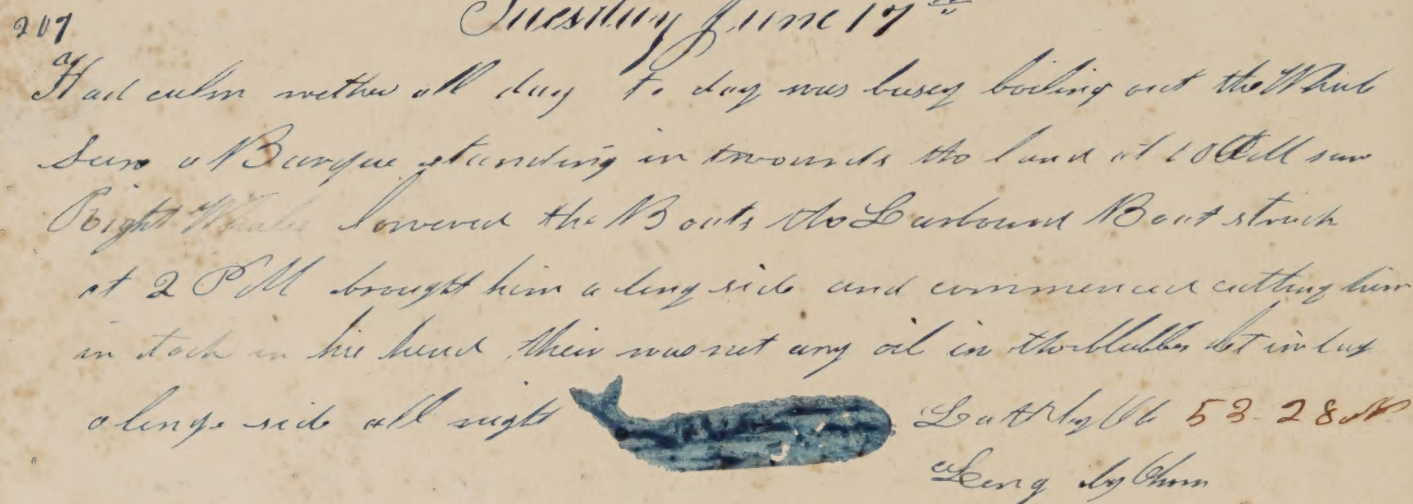 207
Tuesday June 17th
Had calm wether all day to day was busey boiling out the Whale
Seen a Barque standing in towards the land at 10 AM saw
Right Whales lowered the Boats the Larboard Boat struck
at 2 PM brought him a long side and commenced cutting him
in took in his head their was not any oil in the blubber let in lay
a longe side all night Latt by Ob 53-28 N
Long by Chro